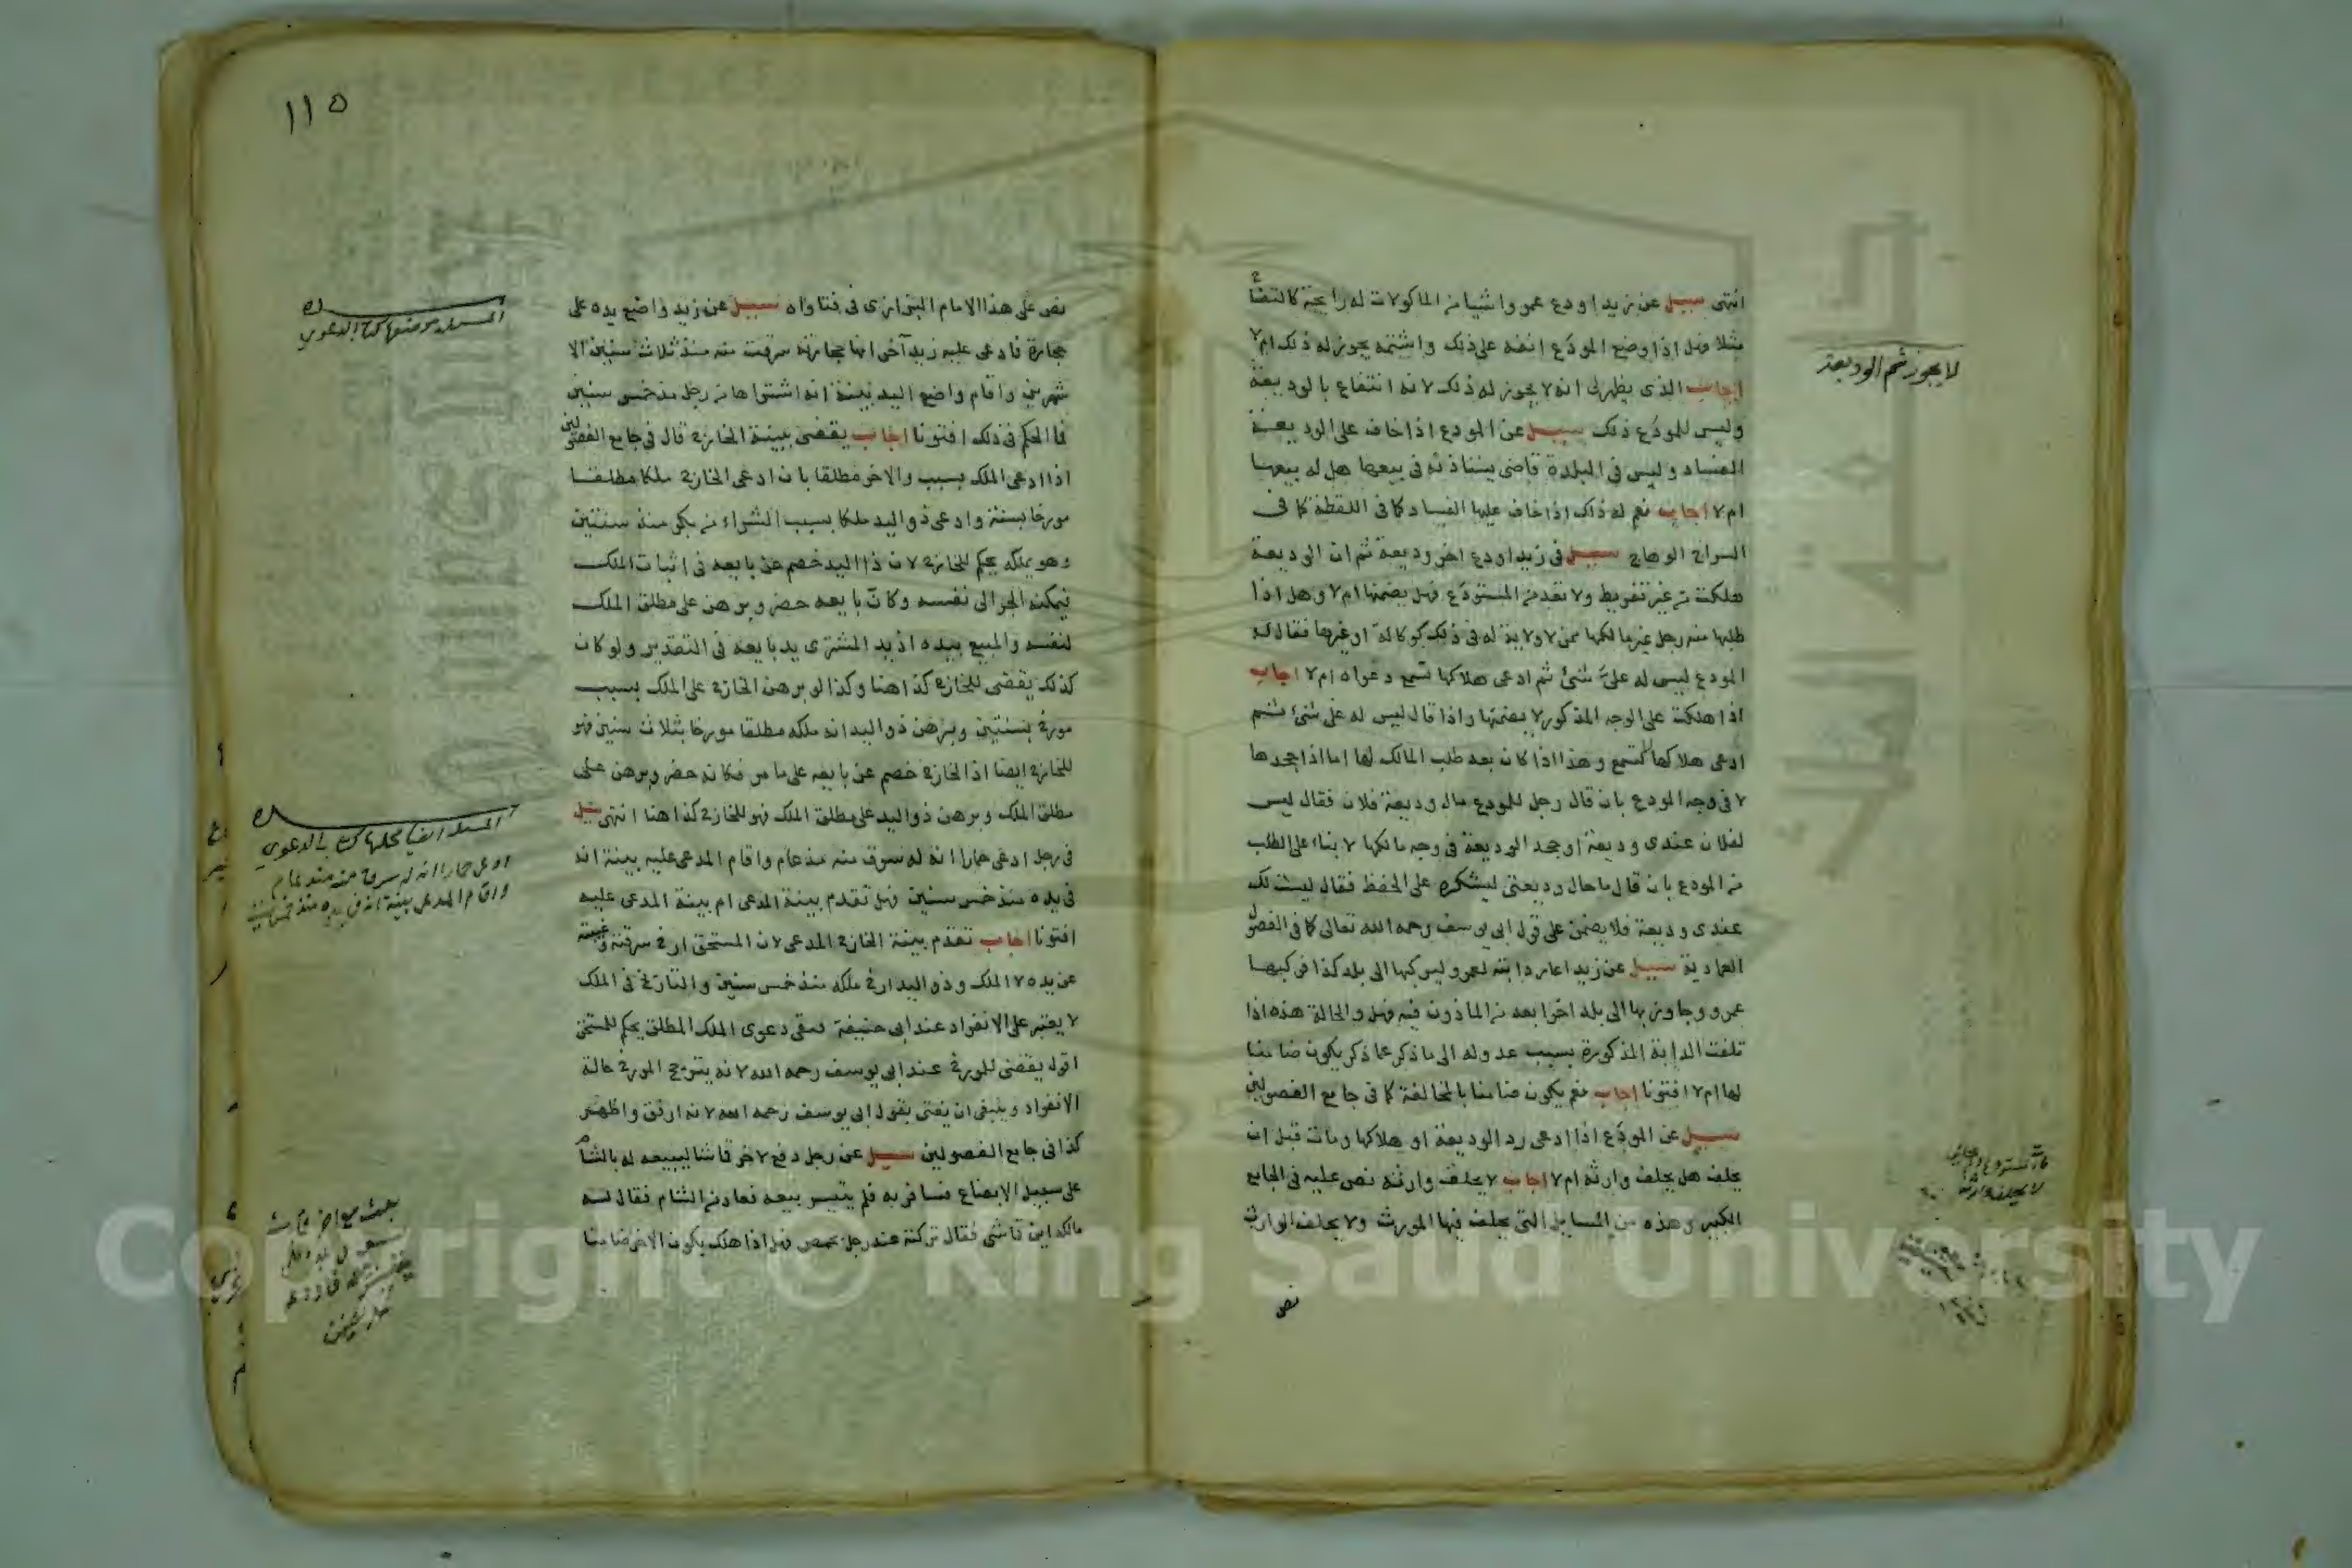 انتهى سيل عن زيد اودع عمروا شيا من الماكولات له رايحة كالتفاح
مثلا فهل اذا وضع المودَع انفه على ذلك واشتمه يجوز له ذلك ام لا
اجاب الذى يظهر لى انه لا يجوز له ذلك لانه انتفاع بالوديعة
وليس للمودَع ذلك سيل عن المودع اذا خاف على الوديعة
الفساد وليس فى البلدة قاضى يستاذنه فى بيعها هل له بيعها
ام لا اجاب نعم له ذلك اذا خاف عليها الفساد كما فى اللقطة كما فى
السراج الوهاج سيل فى زيد اودع اخر وديعة ثم ان الوديعة
هلكت من غير تفريط ولا تعد من المستودَع فهل يضمنها ام لا وهل اذا
طلبها منه رجل غير مالكها ممن لا ولاية له فى ذلك كوكالة او غيرها فقال له
المودع ليس له علىّ شئ ثم ادعى هلاكها تسمع دعواه ام لا اجاب
اذا هلكت على الوجه المذكور لا يضمنها واذا قال ليس له على شئ ثم
ادعى هلاكها لا تسمع وهذا اذا كان بعد طلب المالك لها اما اذا جحدها
لا فى وجه المودع بان قال رجل للمودع ما لوديعة فلان فقال ليس
لفلان عندى وديعة او جحد الوديعة فى وجه مالكها لا بناء على الطلب
من المودع بان قال ما حال وديعتى ليشكره على الحفظ فقال ليست لك
عندى وديعة فلا يضمن على قول ابى يوسف رحمه الله تعالى كما فى الفصول
العمادية سيل عن زيد اعار دابته لعمرو ليركبها الى بلد كذا فركبها
عمرو وجاوز بها الى بلد اخرا بعد من الماذون فيه فهل والحالة هذه اذا
تلفت الدابة المذكورة بسبب عدوله الى ما ذكر عما ذكر يكون ضامنا
لها ام لا افتونا اجاب نعم يكون ضامنا بالمخالفة كما فى جامع الفصولين
سيل عن المودَع اذا ادعى رد الوديعة او هلاكها ومات قبل ان
يحلف هل يحلف وارثه ام لا اجاب لا يحلف وارثه نص عليه فى الجامع
الكبير وهذه من المسايل التى يحلف فيها المورث ولا يحلف الوارث
نص
لا يجوز شم الوديعة
١١٥
نص على هذا الامام البزازى فى فتاواه سيل عن زيد واضع يده على
حجارة فادعى عليه زيد آخر انها حجارته سرقت منه منذ ثلاث سنين الا
شهرين واقام واضع اليد بينة انه اشتراها من رجل منذ خمس سنين
فما الحكم فى ذلك افتونا اجاب يقضى ببينة الخارج قال فى جامع الفصولين
اذا ادعى الملك بسبب والاخر مطلقا بان ادعى الخارج ملكا مطلقا
مورخا بسنة وادعى ذو اليد ملكا بسبب الشراء من بكر منذ سنتين
وهو يملكه يحكم للخارج لان ذا اليد خصم عن بايعه فى اثبات الملك
ليمكنه الجر الى نفسه وكانّ بايعه حضر وبرهن على مطلق الملك
لنفسه والمبيع بيده اذ يد المشترى يد بايعه فى التقدير ولو كان
كذلك يقضى للخارج كذا هنا وكذا لو برهن الخارج على الملك بسبب
مورخ بسنتين وبرهن ذو اليد انه ملكه مطلقا مورخا بثلاث سنين فهو
للخارج ايضا اذ الخارج خصم عن بايعه على ما مر فكانه حضر وبرهن على
مطلق الملك وبرهن ذو اليد على مطلق الملك فهو للخارج كذا هنا انتهى سيل
فى رجل ادعى حمارا انه له سرق منه منذ عام واقام المدعى عليه بينة انه
فى يده منذ خمس سنين فهل تقدم بينة المدعى ام بينة المدعى عليه
افتونا اجاب تقدم بينة الخارج المدعى لان المستحق ارخ سرقته وغيبته
عن يده لا الملك وذو اليد ارخ ملكه منذ خمس سنين والتاريخ فى الملك
لا يعتبر على الانفراد عند ابى حنيفة فبقى دعوى الملك المطلق يحكم للمستحق
اقول يقضى للمورخ عند ابى يوسف رحمه الله لانه يترجح المورخ حالة
الانفراد وينبغى ان يفتى بقول ابى يوسف رحمه الله لانه ارفق واظهر
كذا فى جامع الفصولين سيل عن رجل دفع لاخر قماشا ليبيعه له بالشام
على سبيل الابضاع فسافر به فلم يتيسر بيعه فعاد من الشام فقال له
مالكه اين قماشى فقال تركته عند رجل بحمص فهل اذا هلك يكون الاخر ضامنا
المسئله موضعها كتاب الدعوى
المسئله ايضا محلها كتاب الدعوى
ادعى حمارا انه له سرق منه منذ عام
واقام المدعى بينة انه فى يده منذ خمس سنين
Copyright © King Saud University